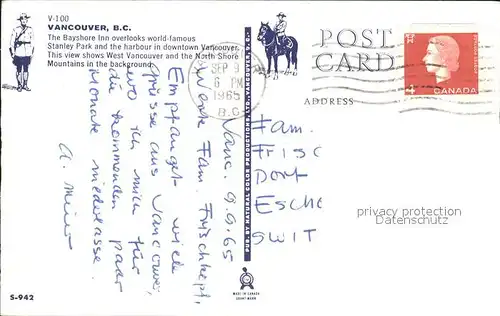 V-100
VANCOUVER, B.C.
The Bayshore Inn overlooks world-famous
Stanley Park and the harbour in downtown Vancouver.
This view shows West Vancouver and the North Shore
Mountains in the background.
Vanc. 9.9.65
Werte Fam. Frischkopf,
Empfanget viele
Grüsse aus Vancouver,
wo ich mich für
die kommenden paar
Monate niederlasse.
A.
PUB. BY NATURAL COLOR PRODUCTIONS LTD., VANCOUVER, B.C.
MADE IN CANADA
POST
CARD
ADDRESS
SEP 9
6 PM
1965
B.C.
4
CANADA
Fam.
FRISC
DORF
ESCHE
SWIT
privacy protection
Datenschutz
S-942